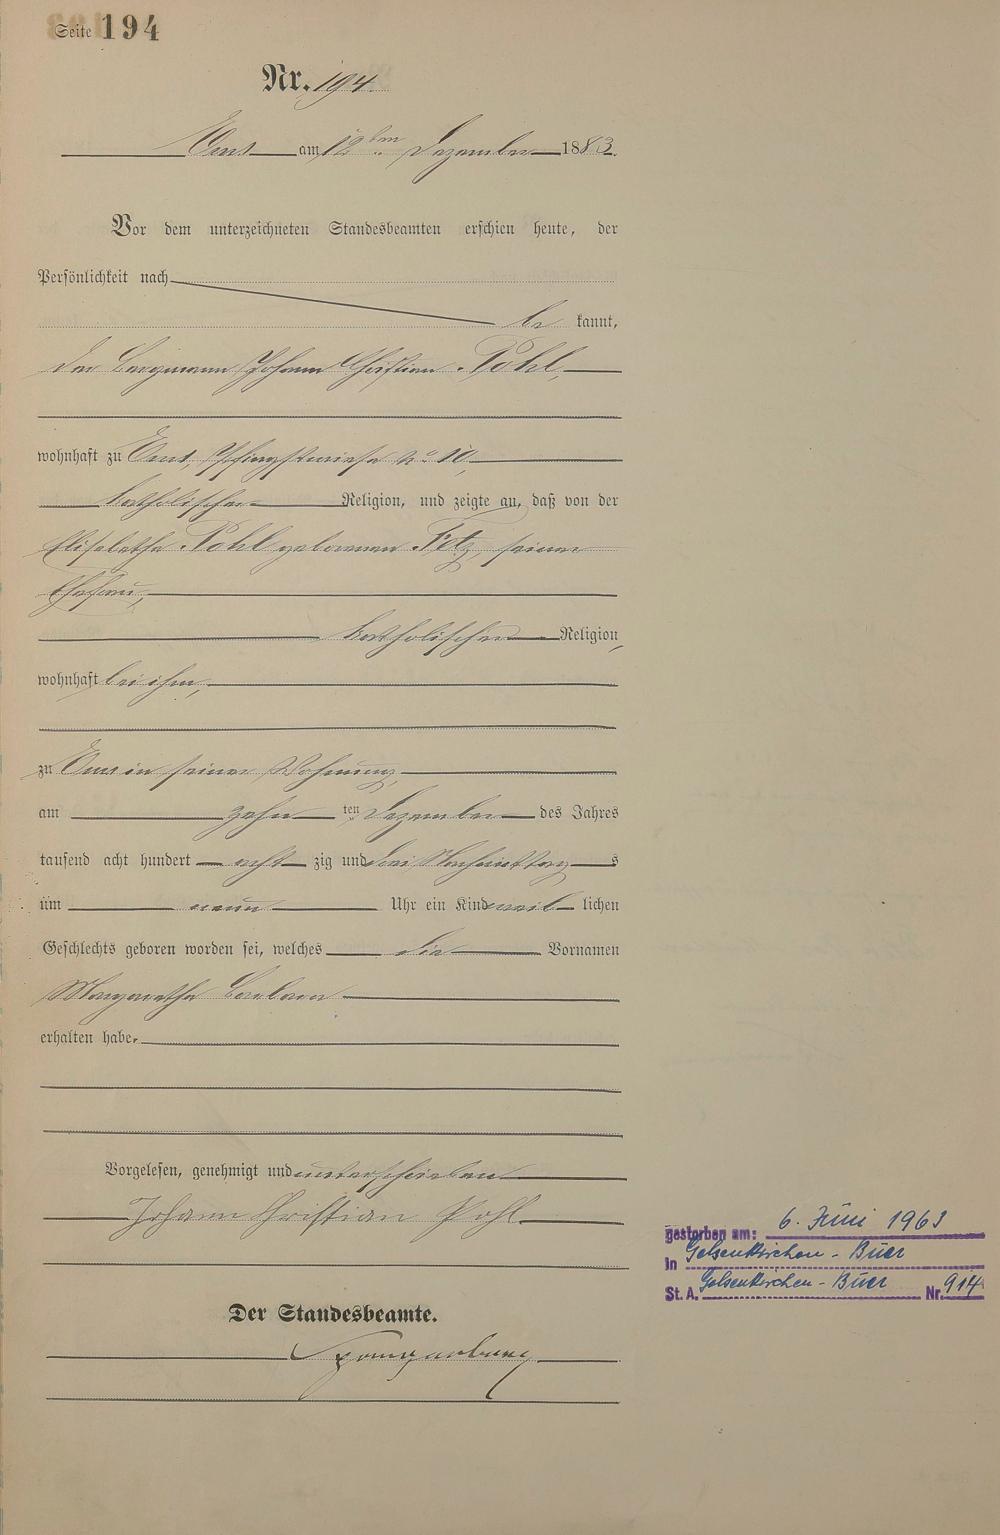 Seite 194
Nr. 194.
Ems am 12ten Dezember 1883.
Vor dem unterzeichneten Standesbeamten erschien heute, der
Persönlichkeit nach
be kannt,
der Bergmann Johann Christian Pohl,
wohnhaft zu Ems, Pfingstwiese No 10,
katholischer Religion, und zeigte an, daß von der
Elisabetha Pohl geborenen Fetz, seiner
Ehefrau,
katholischer Religion,
wohnhaft bei ihm,
zu Ems in seiner Wohnung,
am zehn ten Dezember des Jahres
tausend acht hundert acht zig und drei Nachmittag s
um neun Uhr ein Kind weib lichen
Geschlechts geboren worden sei, welches die Vornamen
Margaretha Barbara
erhalten habe.
Vorgelesen, genehmigt und unterschrieben
Johann Christian Pohl
gestorben am: 6. Juni 1963
in Gelsenkirchen-Buer
St. A. Gelsenkirchen-Buer Nr. 914
Der Standesbeamte.